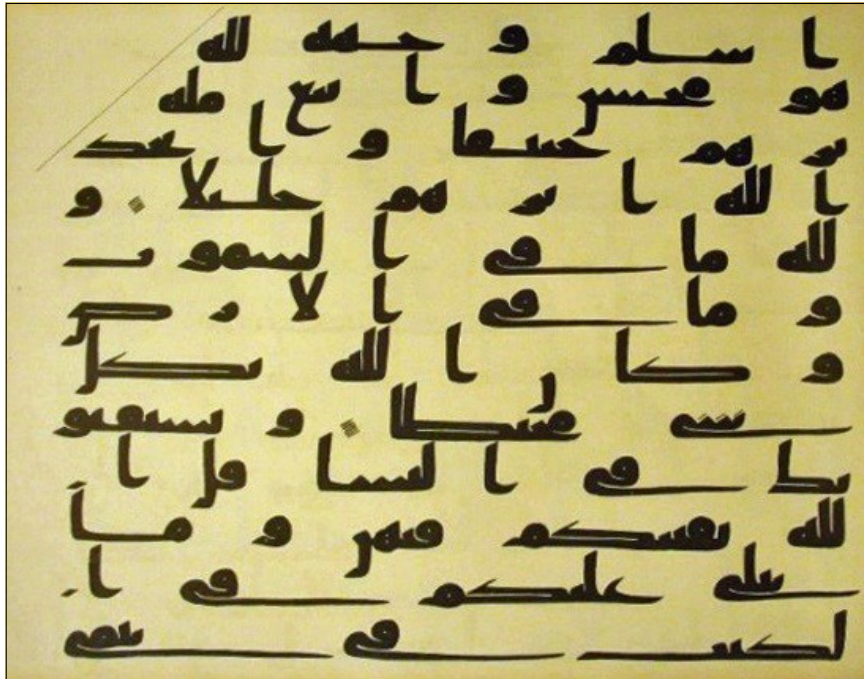 اسلم وجهه لله
هو محسن واتبع مله
برهيم حنيفا واتخذ
الله ابرهيم خليلا و
لله ما في السموت
وما في الارض
وكان الله بكل
شي محيطا ويستفتو
نك في النسا قل ا
لله يفتيكم فيهن وما
يتلى عليكم في ا
لكتب في يتمى